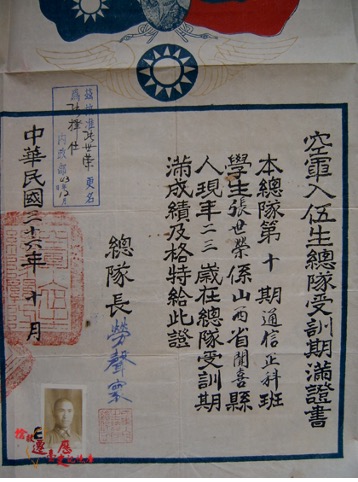 空軍入伍生總隊受訓期滿證書
本總隊第十期通信正科班
學生張世榮係山西省聞喜縣
人現年二三歲在總隊受訓期
滿成績及格特給此證
總隊長勞聲寰
中華民國三十六年十月
茲批准張世榮更名
為張擇仕
內政部